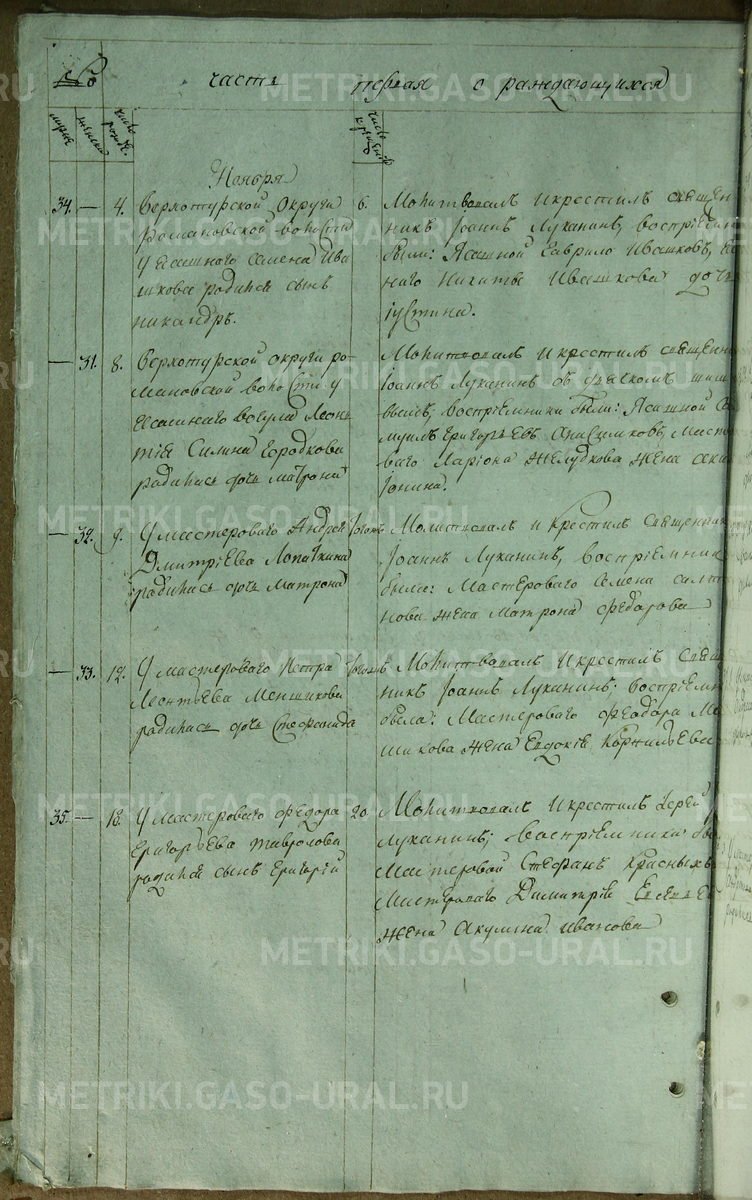 № часть первая о раждающихся
мужс женска число рожде. число крещенія
Ноября
34. — 4. Верхотурской округи
Романовской волости
у ясашнаго Семена Ива
шкова родился сынъ
Никандръ.
6. Молитвовалъ и крестилъ священ
никъ Іоаннъ Луканинъ, воспріемни
были: Ясашной Гаврило Ивашковъ,
наго Никиты Ивашкова дочь
Іустина.
— 31. 8. Верхотурской округи ро
мановской волости у
ясашнаго вогула Леон
тія Силина Городкова
родилась дочь Матрона
Молитвовалъ и крестилъ священн
Іоаннъ Луканинъ
воспріемники были: Ясашной Са
муилъ Григорьевъ Анисимковъ, Масте
роваго Ларіона Желудкова жена
— 32. 9. У мастероваго Андрея
Димитріева Лопаткина
родилась дочь Матрона
Молитвовалъ и крестилъ священник
Іоаннъ Луканинъ, воспріемник
была: Мастероваго Семена
жена Матрона Федорова
— 33. 12. У мастероваго Петра
Леонтьева Меншикова
родилась дочь Стефанида
Молитвовалъ и крестилъ свящ
никъ Іоаннъ Луканинъ; воспріемн
была: Мастероваго Феодора Ме
шикова жена Евдокія Корнильева
35. — 18. У мастероваго Федора
Григорьева Тавролова
родился сынъ Григорій
20. Молитвовалъ и крестилъ Іерей
Луканинъ; воспріемники бы
мастеровой Стефанъ Красныхъ
мастероваго Димитрія
жена Акулина Иванова
METRIKI.GASO-URAL.RU